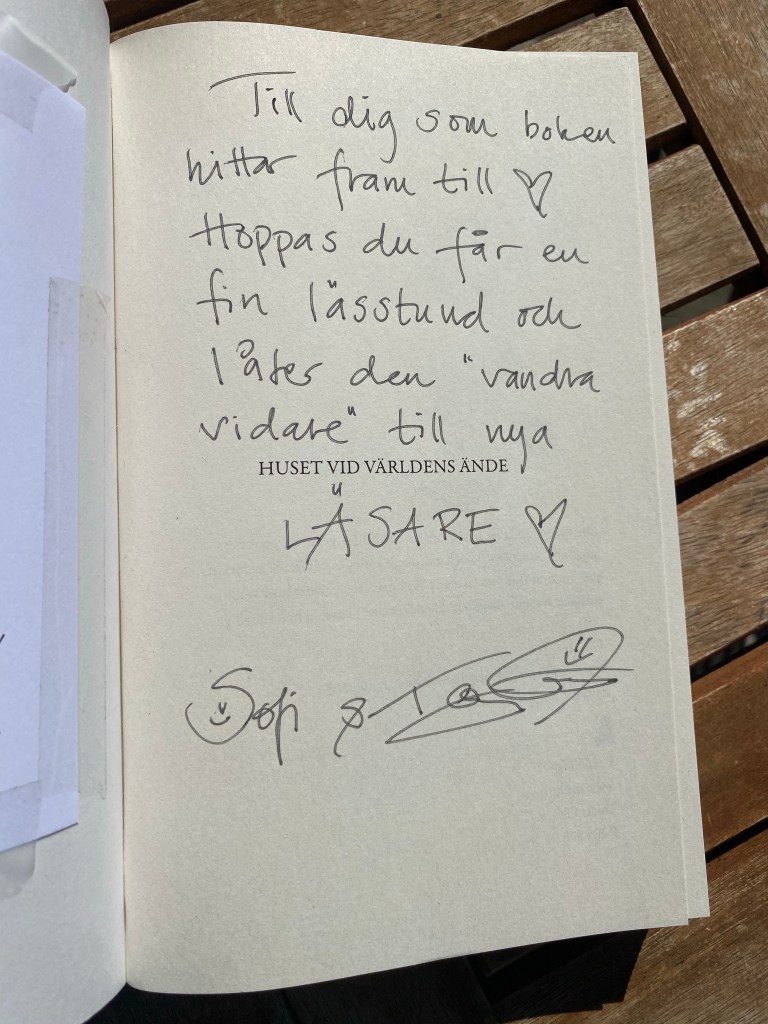 Till dig som boken
hittar fram till ♡
Hoppas du får en
fin lässtund och
låter den "vandra
vidare" till nya
HUSET VID VÄRLDENS ÄNDE
LÄSARE ♡
Sofi &